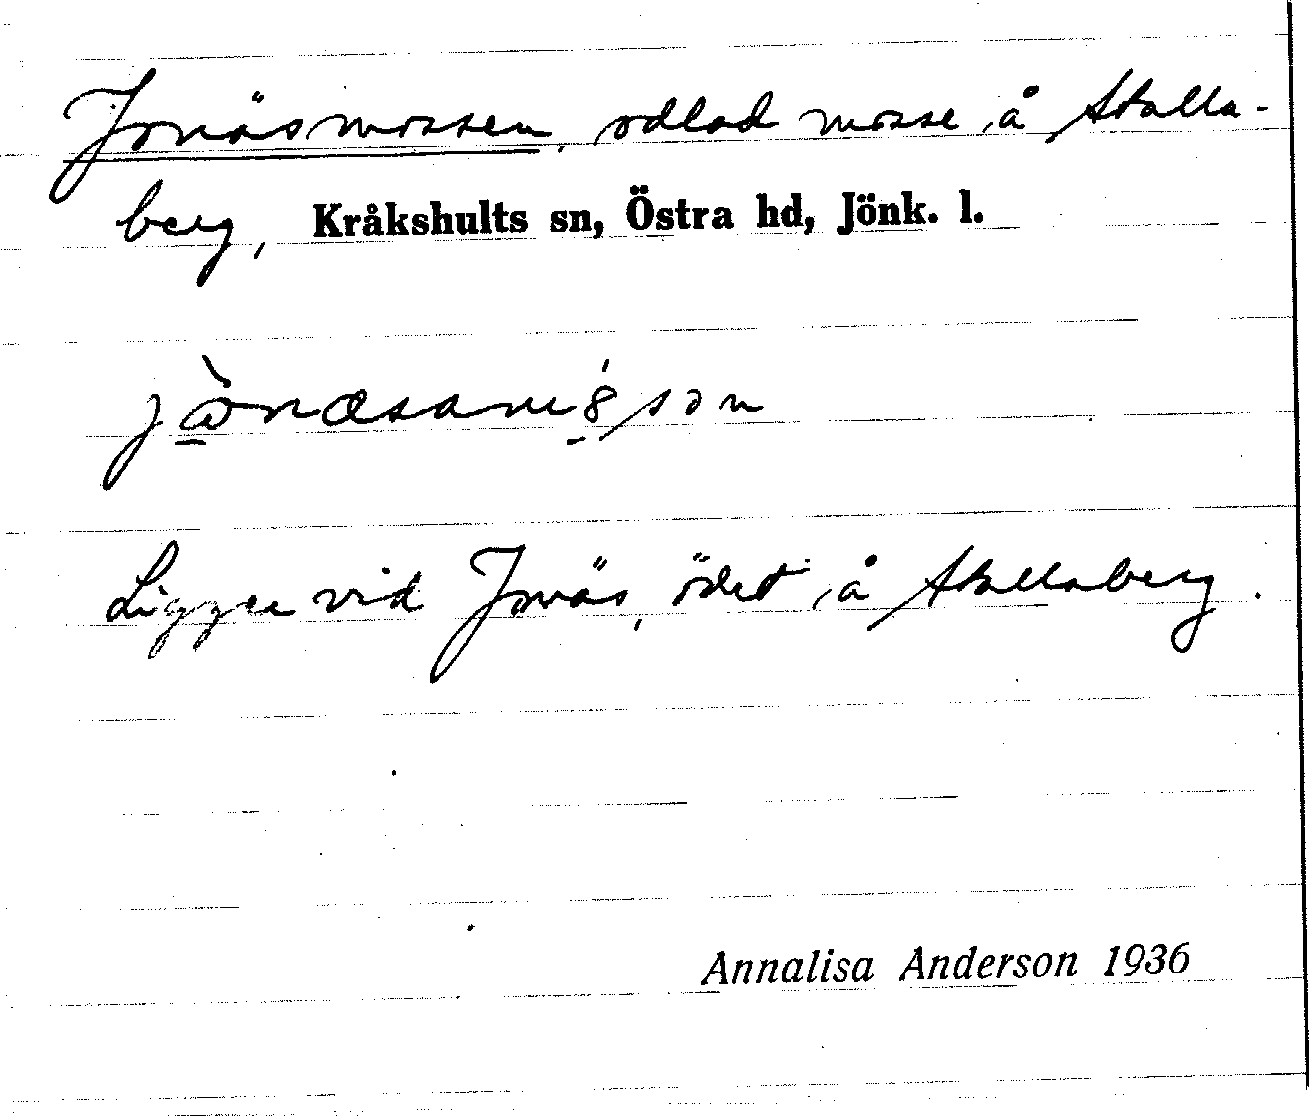 Jonäsmossen, odlad mosse å Skalla-
berg, Kråkshults sn, Östra hd, Jönk. l.
Ligger vid Jonäs, ödet å Skallaberg.
Annalisa Anderson 1936